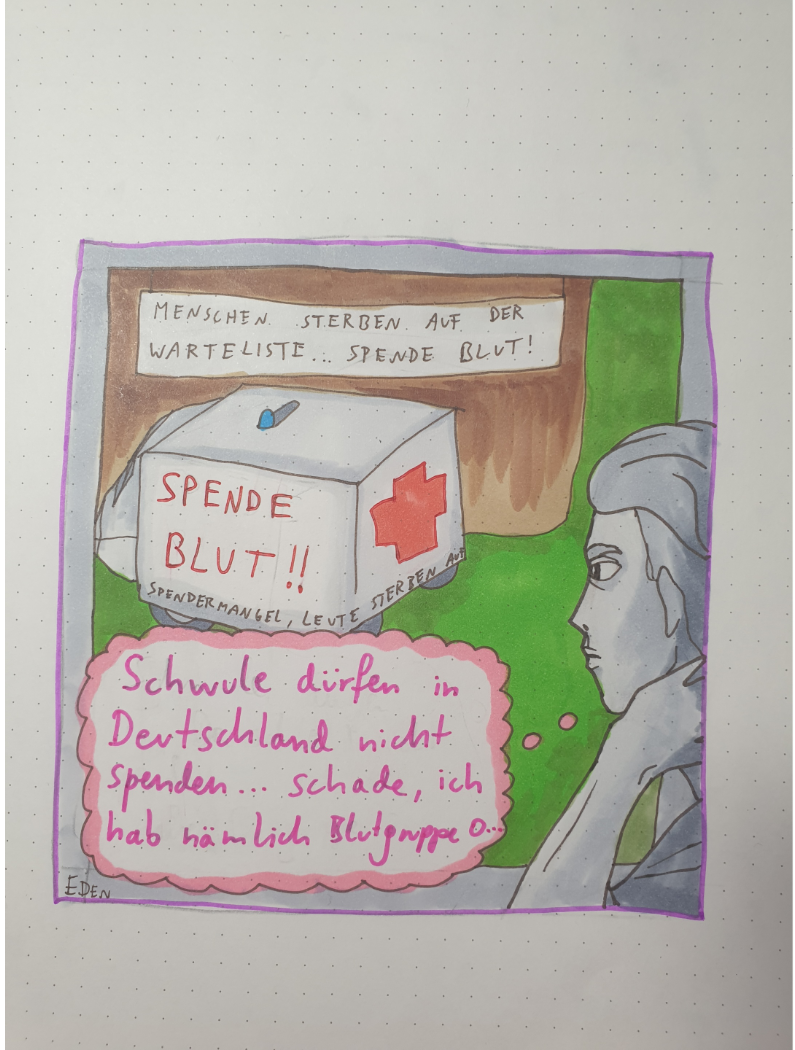 MENSCHEN STERBEN AUF DER
WARTELISTE... SPENDE BLUT!
SPENDE
BLUT!!
SPENDERMANGEL, LEUTE STERBEN AUF
Schwule dürfen in
Deutschland nicht
spenden... schade, ich
hab nämlich Blutgruppe 0...
EDEN